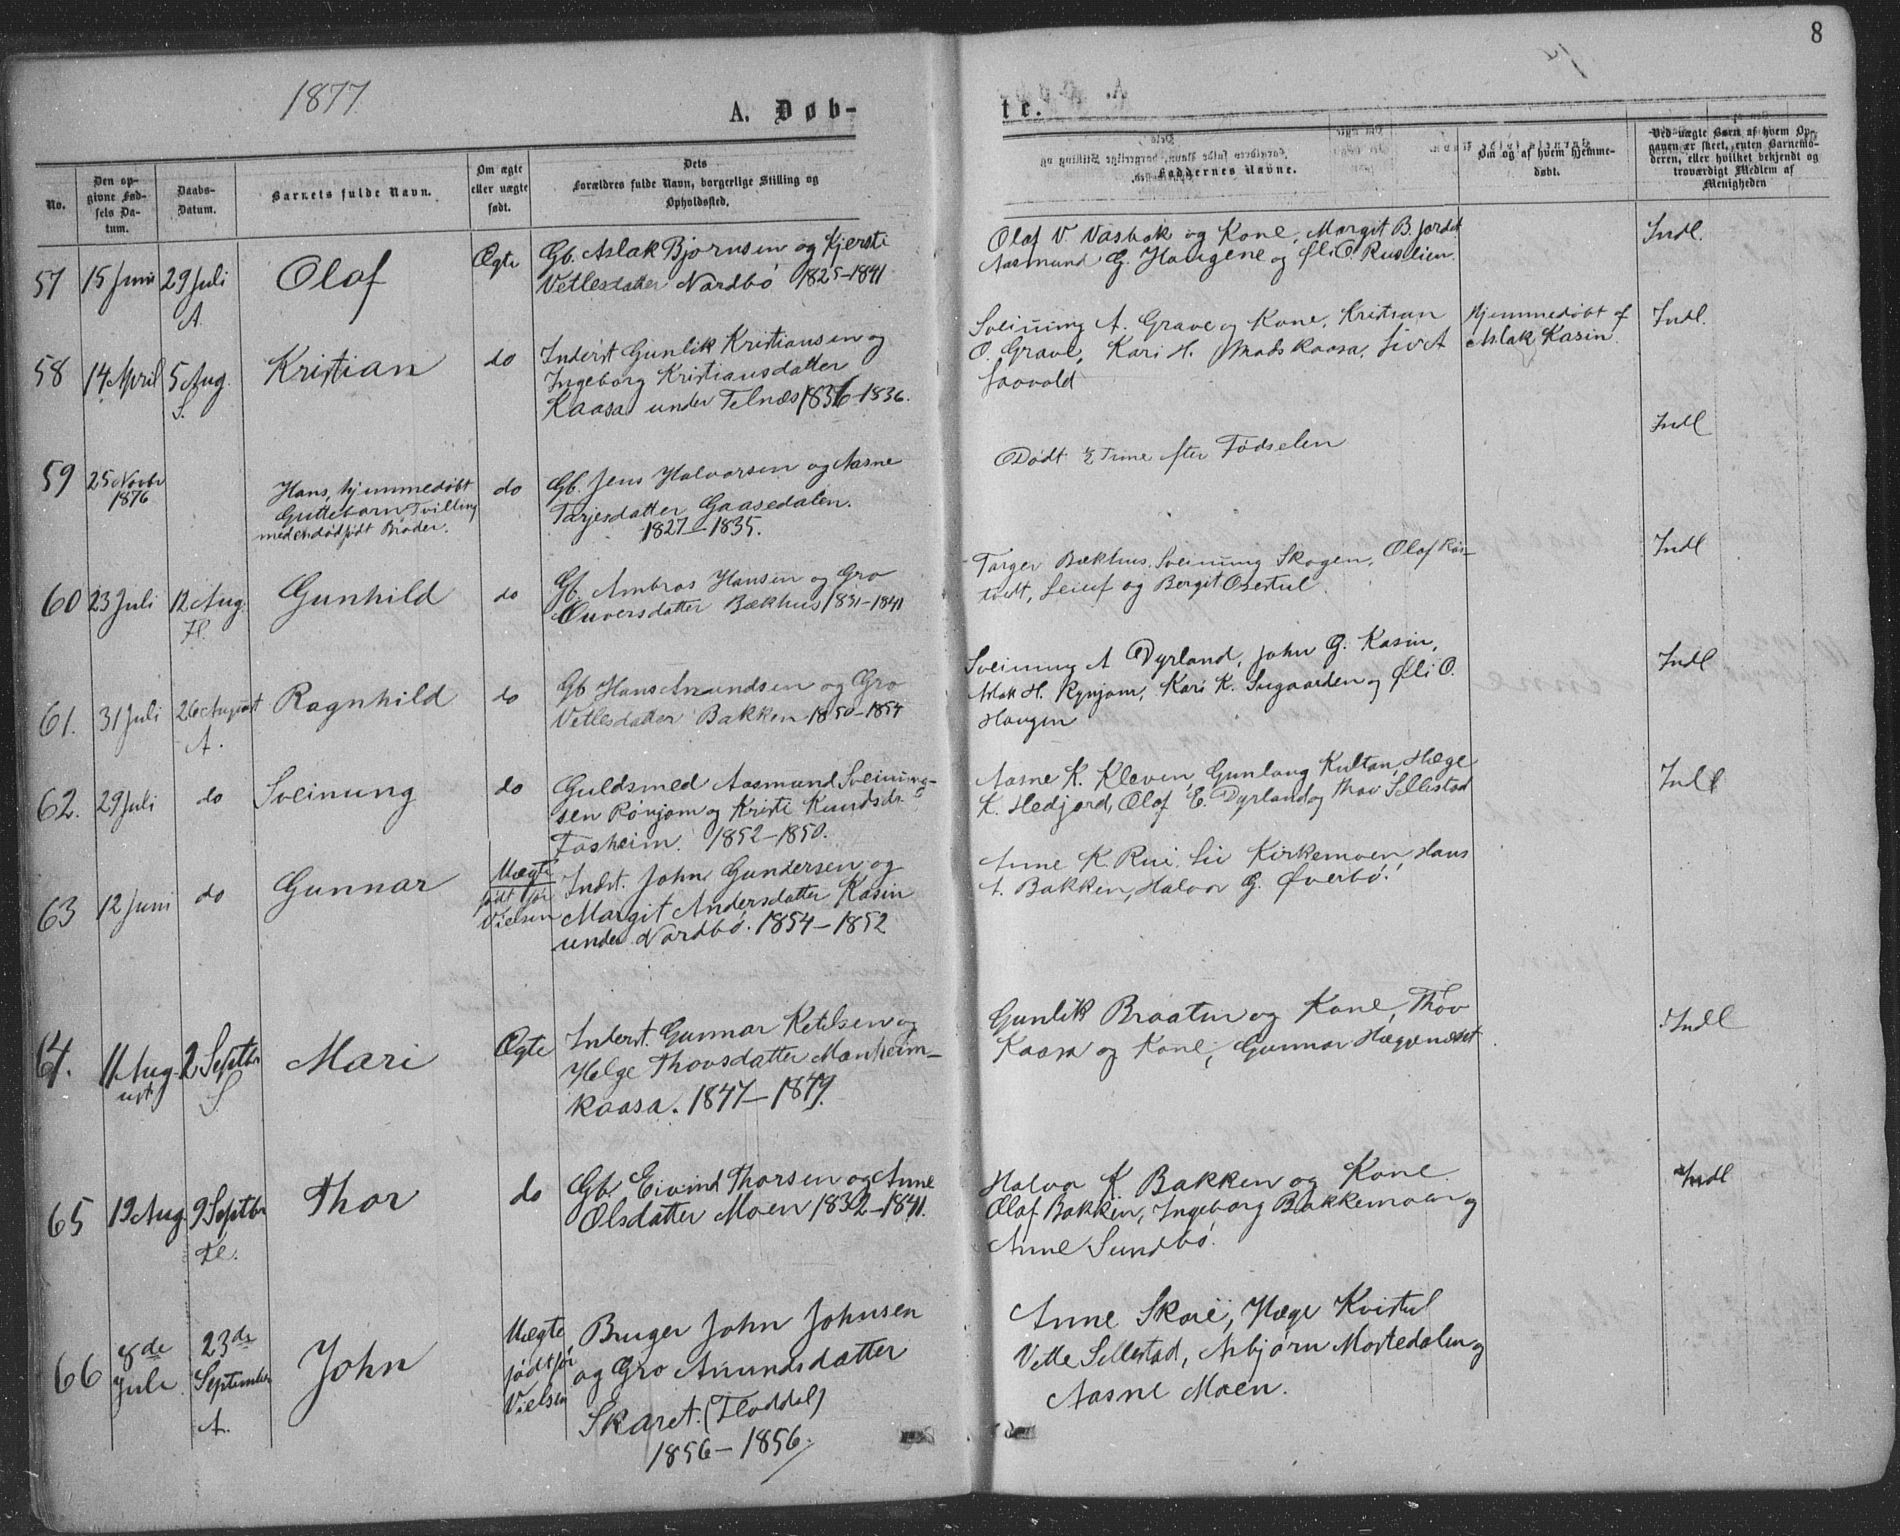 1877.
A. Døb-
No.
Den op-
givne Fød-
sels Da-
tum.
Daabs-
Datum.
Barnets fulde Navn.
Om ægte
eller uægte
født.
Dets
Forældres fulde Navn, borgerlige Stilling og
Opholdssted.
57 15 Juni 29 Juli Olaf Ægte Gb. Aslak Bjørnsen og Kjersti
A. Vetlesdatter Nordbö 1825-1841
58 14 April 5 Aug. Kristian do Inderst Gunlik Kristiansen og
S. Ingeborg Kristiansdatter
Kaasa under Telnæs 1836-1836.
59 25 Novbr
1876
Hans, hjemmedøbt
Guttebarn Tvilling
med en dødfødt Broder.
do Gb. Jens Halvorsen og Aasne
Tarjesdatter Gaasedalen.
1827-1835.
60 23 Juli 12 Aug. Gunhild do Gb. Ambros Hansen og Gro
Fl. Ouversdatter Bækhus 1831-1841
61. 31 Juli 26 August Ragnhild do Gb Hans Amundsen og Gro
A. Vetlesdatter Bakken 1850-1854
62. 29 Juli do Sveinung do Guldsmed Aasmund Sveinung-
sen Rönjom og Kristi Knudsdr.
Fosheim. 1852-1850.
63 12 Juni do Gunnar Uægte
født før
Vielsen
Indst. John Gundersen og
Margit Andersdatter Kasin
under Nordbö. 1854-1852
64. 11 Aug-
ust
2 Septbr
S
Mari Ægte Inderst. Gunnar Ketilsen og
Helge Thovsdatter Manheim-
kaasa. 1847-1849.
65 19 Aug. 9 Septbr Thor do Gb. Eivind Thorsen og Anne
Fl. Olsdatter Moen 1832-1841.
66 8de
Juli.
23de
September
A.
John Uægte
født før
Vielsen
Bruger John Johnsen
og Gro Amundsdatter
Skaret. (Fladdal)
1856-1856.
8
te.
Faddernes Navne.
Om og af hvem hjemme-
døbt.
Ved uægte Børn af hvem Op-
gaven er skeet, enten Barnemo-
deren, eller hvilket bekjendt og
troværdigt Medlem af
Menigheden
Olaf V. Vasbøk og Kone, Margit B. Jordet Indl.
Aasmund G. Haugene og Øli O. Rusleien.
Sveinung A. Grave og Kone, Kristian Hjemmedøbt af Indl.
O. Grave, Kari H. Madskaasa, Liv A Aslak Kasin.
Døde Time efter Fødselen Indl
Targer Bækhus, Sveinung Skogen, Olaf Rös- Indl
tvedt, Leiuf og Bergit Osertul.
Sveinung A Dyrland, John G. Kasin, Indl
Aslak H. Rynjom, Kari K. og Øli O.
Haugen
Aasne K. Kleven, Gunlaug Kultan, Hæge Indl
K. Hedjord, Olaf E. Dyrland og Thov Sillestad
Anne K. Rui, Liv Kirkemoen, Hans
A. Bakken, Halvor G. Øverbø.
Gunlik Braaten og Kone, Thov Indl
Kaasa og Kone, Gunnar Hæggenæset
Halvor K Bakken og Kone. Indl
Olaf Bakken, Ingeborg Bakkemoen og
Anne Sundbö.
Anne Skoie, Hæge Kvistul
Vetle Sillestad, Asbjørn Mostedalen og
Aasne Moen.